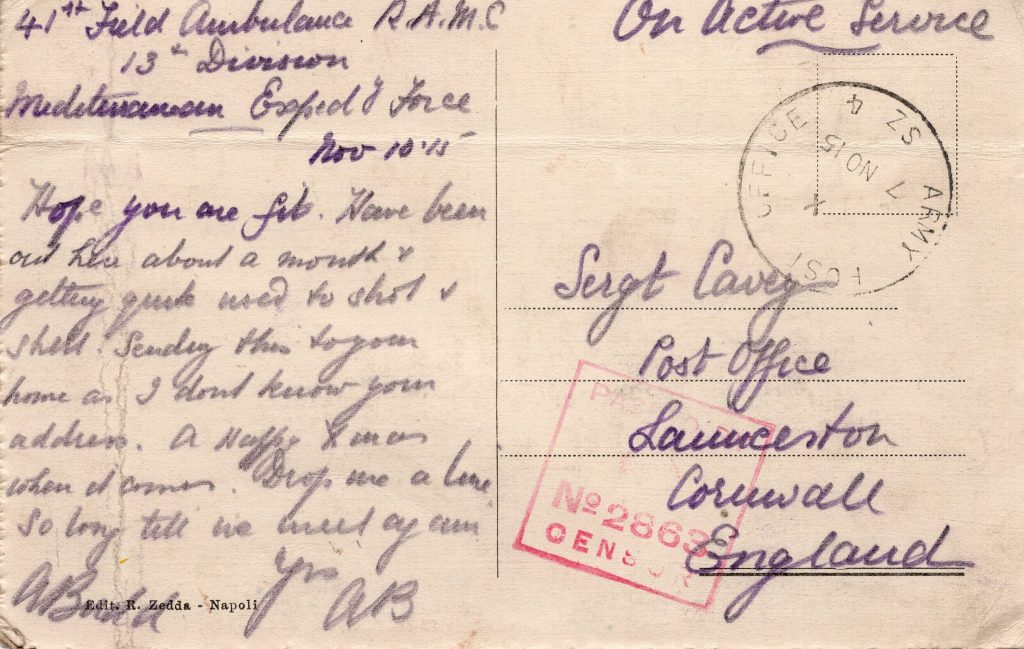 41st Field Ambulance R.A.M.C
13th Division
Mediterranean Exped'y Force
Nov 10·15
Hope you are fit. Have been
out here about a month &
getting quite used to shot &
shell. Sending this to your
home as I dont know your
address. A Happy Xmas
when it comes. Drop me a line
So long till we meet again
Yrs
AB
Edit. R. Zedda - Napoli
On Active Service
ARMY POST OFFICE
SZ 4
7 NO 15
X
Sergt Cavey
Post Office
Launceston
Cornwall
England
PASSED
No 2863
CENSOR